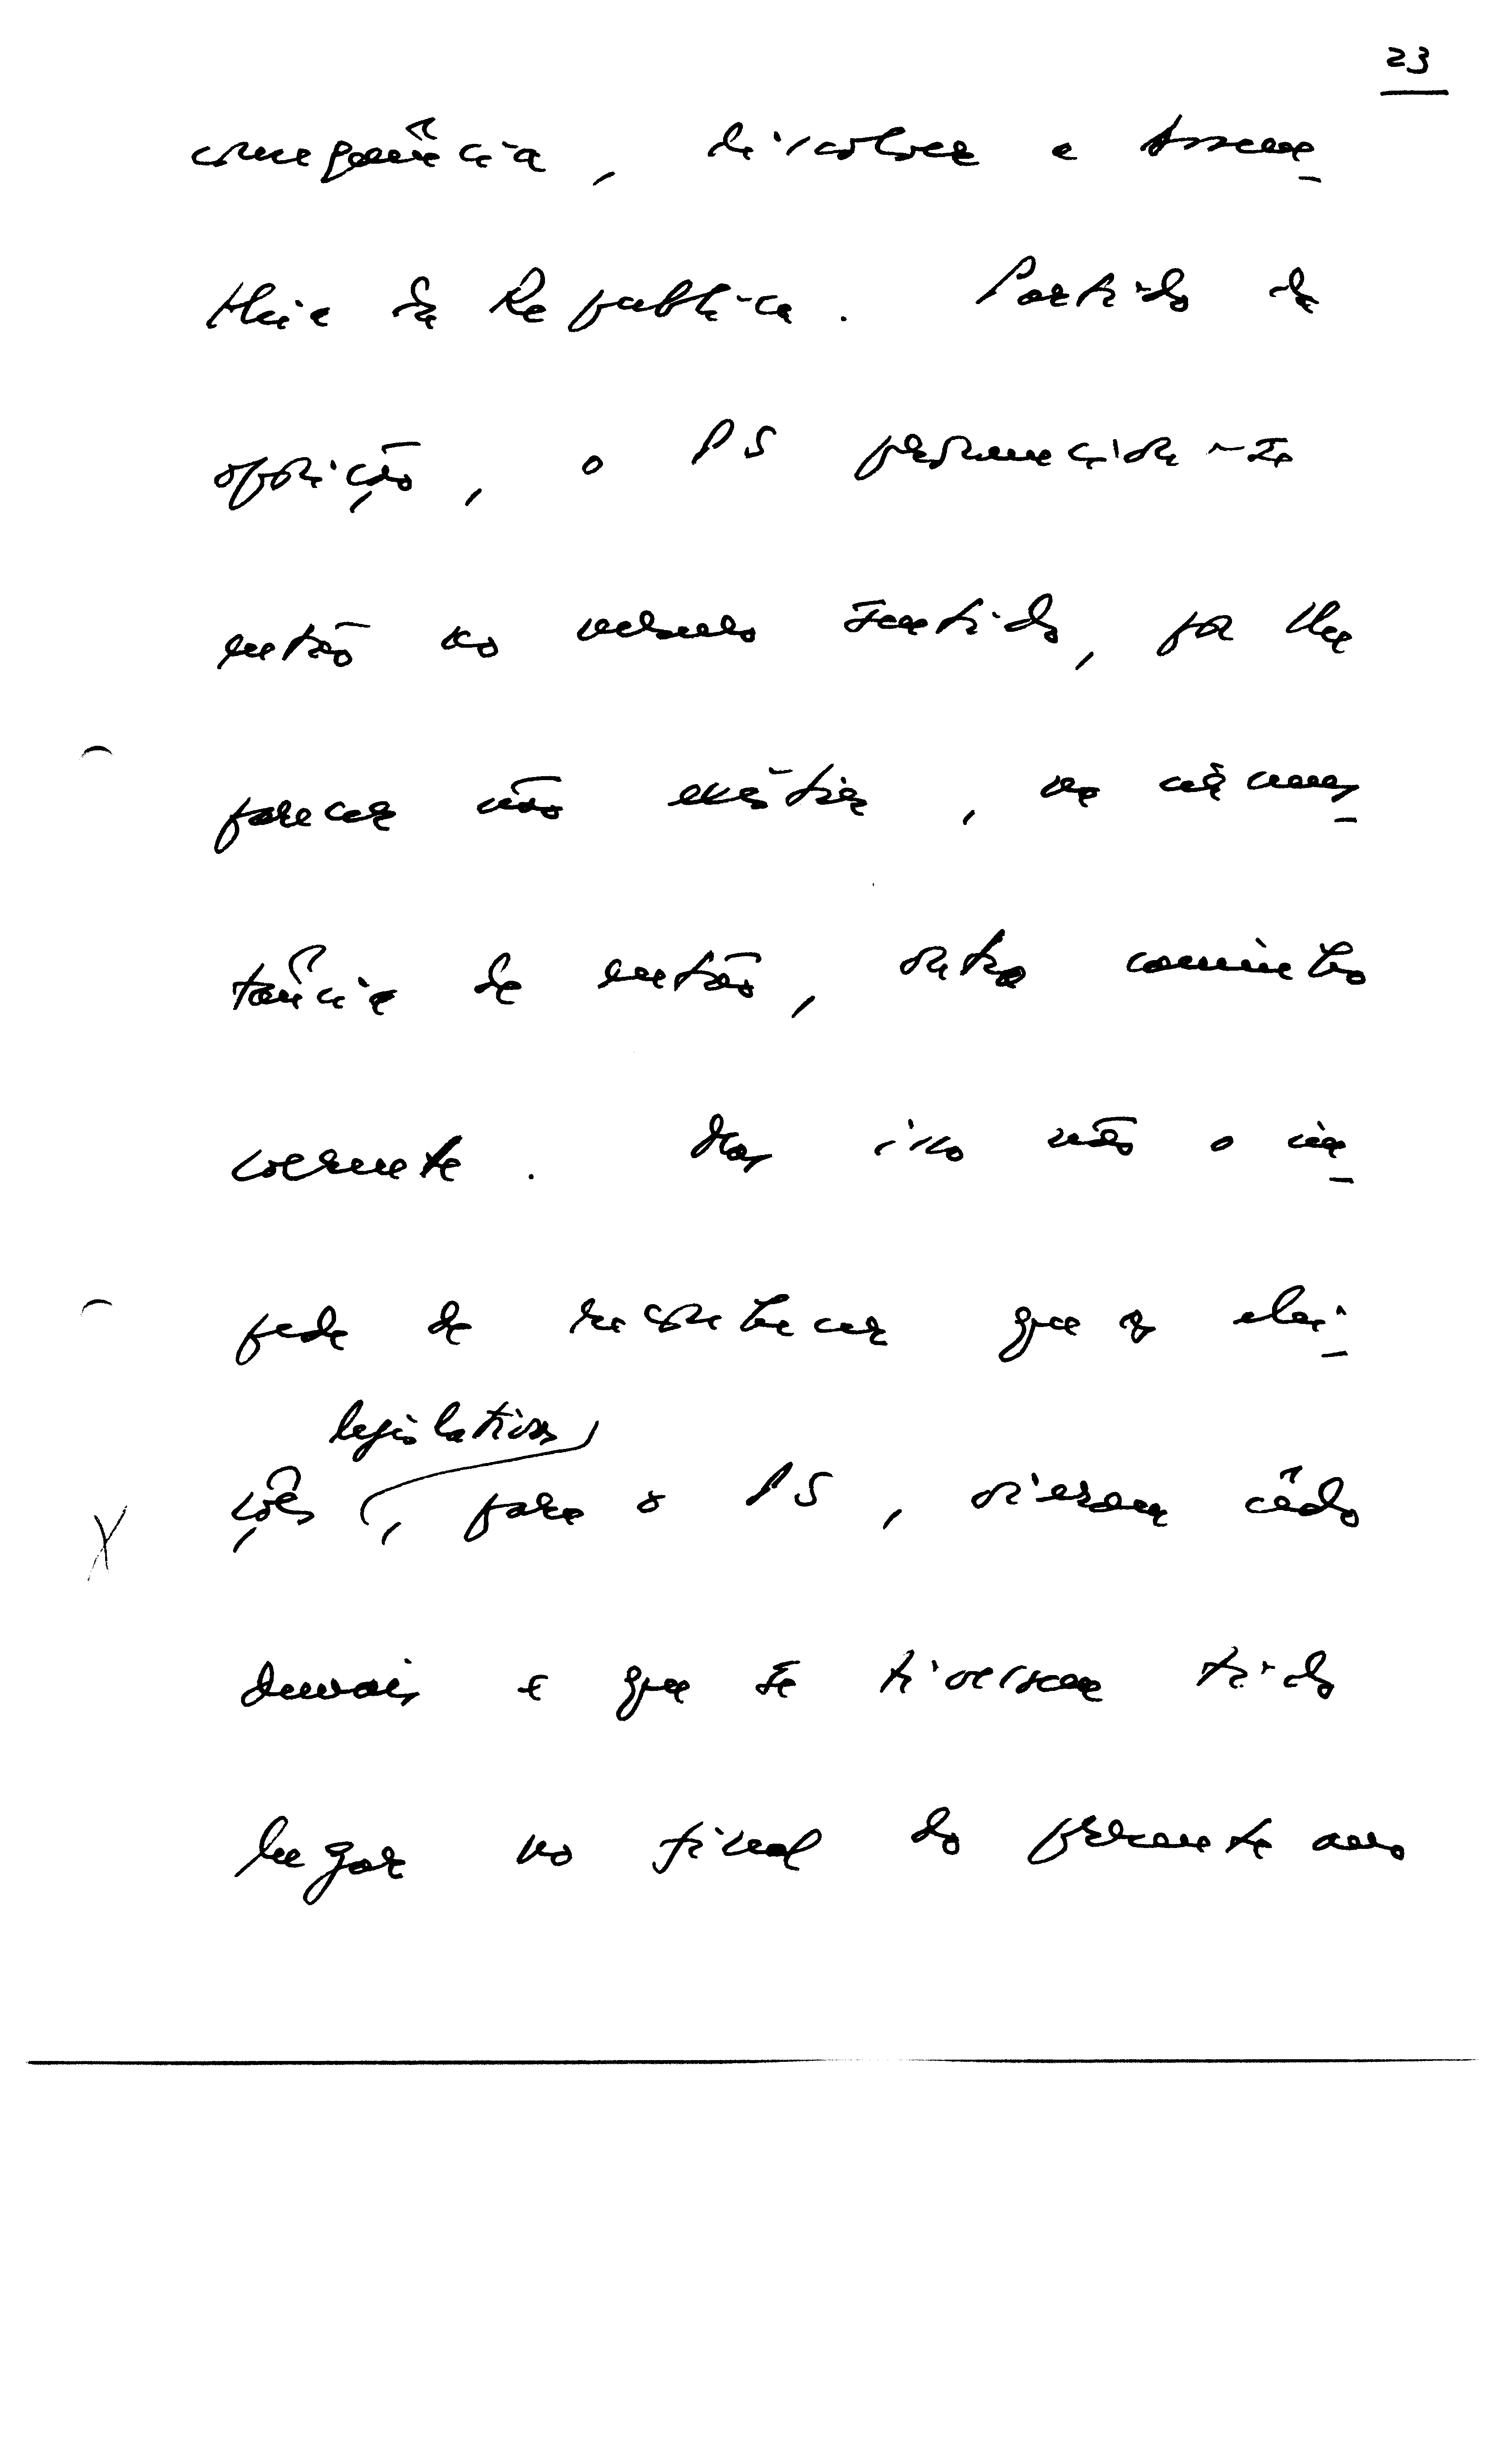 23
consequência, dissolver a Assem-
bleia da República. Partido da
oposição, o PS pronunciou-se
então no mesmo sentido, por lhe
parecer não existir, na circuns-
tância de então, outro caminho
coerente. Mas isso não o im-
pede de reconhecer que as elei-
legislativas
ções, para o PS, vieram cêdo
demais e que se tivessem tido
lugar no final do presente ano